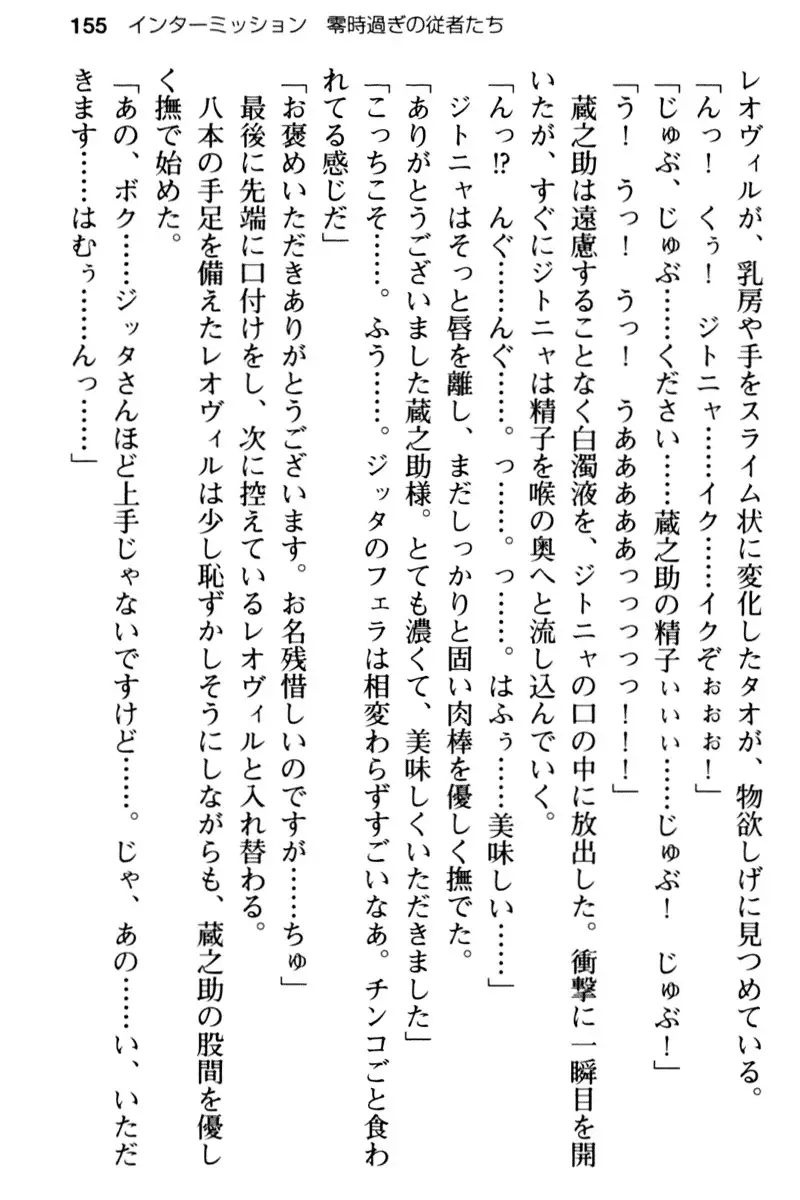 155 インターミッション 零時過ぎの従者たち
レオヴィルが、乳房や手をスライム状に変化したタオが、物欲しげに見つめている。
「んっ！ くぅ！ ジトニャ……イク……イクぞぉぉぉ！」
「じゅぶ、じゅぶ……ください……蔵之助の精子ぃぃぃ……じゅぶ！ じゅぶ！」
「う！ うっ！ うっ！ うああああぁっっっっっ！！！」
蔵之助は遠慮することなく白濁液を、ジトニャの口の中に放出した。衝撃に一瞬目を開
いたが、すぐにジトニャは精子を喉の奥へと流し込んでいく。
「んっ!? んぐ……んぐ……。っ……。っ……。はふぅ……美味しい……」
ジトニャはそっと唇を離し、まだしっかりと固い肉棒を優しく撫でた。
「ありがとうございました蔵之助様。とても濃くて、美味しくいただきました」
「こっちこそ……。ふう……。ジッタのフェラは相変わらずすごいなぁ。チンコごと食わ
れてる感じだ」
「お褒めいただきありがとうございます。お名残惜しいのですが……ちゅ」
最後に先端に口付けをし、次に控えているレオヴィルと入れ替わる。
八本の手足を備えたレオヴィルは少し恥ずかしそうにしながらも、蔵之助の股間を優し
く撫で始めた。
「あの、ボク……ジッタさんほど上手じゃないですけど……。じゃ、あの……い、いただ
きます……はむぅ……んっ……」